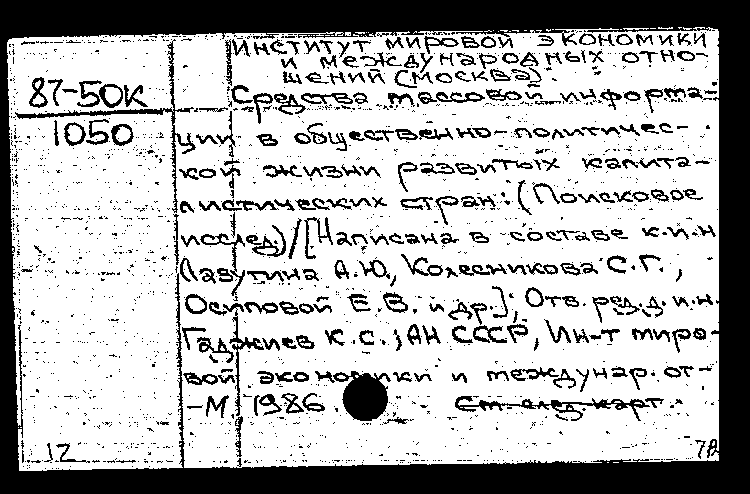 Институт мировой экономики
и международных отно-
шений (Москва).
87-50К
1050
Средства массовой информа-
ции в общественно-политичес-
кой жизни развитых капита-
листических стран: (Поисковое
исслед.)/[Написана в составе к.и.н
Лазутина А.Ю, Колесникова С.Г.,
Осиповой Е.В. и др.]; Отв. ред. д.и.н.
Гаджиев К.С.; АН СССР, Ин-т миро-
вой экономики и междунар. от-
-М 1986.
См. след. карт.
12